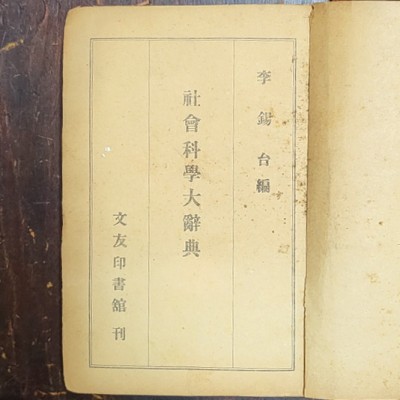 李錫台編
社會科學大辭典
文友印書館刊